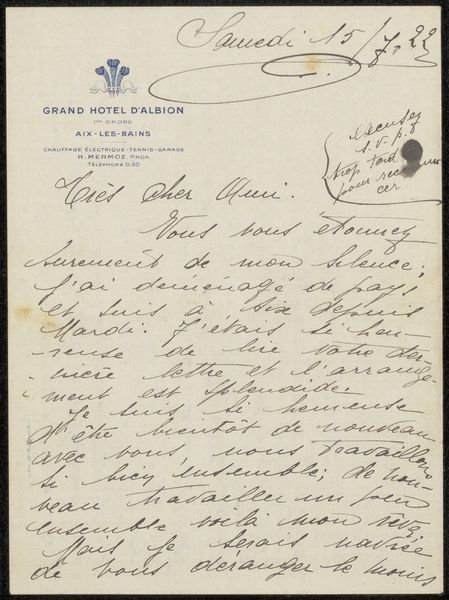 Samedi 15/7-22
GRAND HOTEL D'ALBION
1ER ORDRE
AIX-LES-BAINS
CHAUFFAGE ÉLECTRIQUE-TENNIS-GARAGE
H. MERMOZ, PROP.
TÉLÉPHONE 0,20
excusez
s.v.p.
trop tard
pour recommen
cer
Très Cher Ami.
Vous vous étonnez
surement de mon silence;
j'ai demenagé de pays
et suis à Aix depuis
Mardi. J'étais si heu-
-reuse de lire votre der-
-nière lettre et l'arrange-
ment est splendide.
Je suis si heureuse
d'être bientôt de nouveau
avec vous, nous travaillons
si bien ensemble; de nou-
veau travailler un peu
ensemble voilà mon rêve,
Mais je serais navrée
de vous deranger le moins